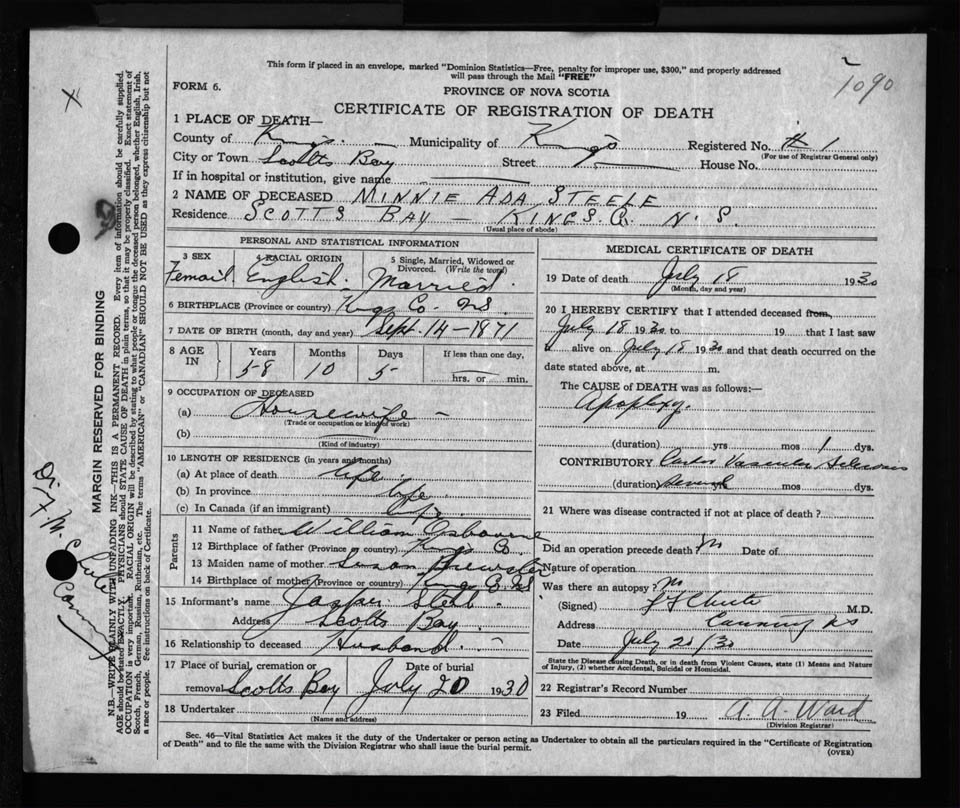 This form if placed in an envelope, marked "Dominion Statistics—Free, penalty for improper use, $300," and properly addressed
will pass through the Mail "FREE"
1090
FORM 6.
PROVINCE OF NOVA SCOTIA
CERTIFICATE OF REGISTRATION OF DEATH
1 PLACE OF DEATH—
County of Kings Municipality of Kings Registered No. # 1
(For use of Registrar General only)
City or Town Scotts Bay Street House No.
If in hospital or institution, give name
2 NAME OF DECEASED MINNIE ADA STEELE
Residence SCOTTS BAY — KINGS. Co. N. S.
(Usual place of abode)
PERSONAL AND STATISTICAL INFORMATION
3 SEX 4 RACIAL ORIGIN 5 Single, Married, Widowed or
Divorced. (Write the word)
Femail. English. Married.
6 BIRTHPLACE (Province or country) Kings Co. NS.
7 DATE OF BIRTH (month, day and year) Sept. 14 — 1871
8 AGE IN Years Months Days If less than one day,
58 10 5 hrs. or min.
9 OCCUPATION OF DECEASED
(a) Housewife —
(Trade or occupation or kind of work)
(b)
(Kind of industry)
10 LENGTH OF RESIDENCE (in years and months)
(a) At place of death life
(b) In province life
(c) In Canada (if an immigrant)
Parents
11 Name of father William Osbourne
12 Birthplace of father (Province or country) Kings Co.
13 Maiden name of mother Susan Brewster
14 Birthplace of mother (Province or country) Kings Co NS
15 Informant's name Jasper Steel.
Address Scotts Bay.
16 Relationship to deceased Husband
17 Place of burial, cremation or Date of burial
removal Scotts Bay July 20 1930
18 Undertaker
(Name and address)
MEDICAL CERTIFICATE OF DEATH
19 Date of death July 18 1930
(Month, day and year)
20 I HEREBY CERTIFY that I attended deceased from,
July 18 1930 to 19 that I last saw
h alive on July 18 1930 and that death occurred on the
date stated above, at m.
The CAUSE of DEATH was as follows:—
Apoplexy.
(duration) yrs mos 1 dys.
CONTRIBUTORY Cardio Vascular Sclerosis
(duration) Several yrs mos dys.
21 Where was disease contracted if not at place of death?
Did an operation precede death? No Date of
Nature of operation
Was there an autopsy? No
(Signed) M.D.
Address Canning NS
Date July 21/30
State the Disease causing Death, or in death from Violent Causes, state (1) Means and Nature
of Injury, (2) whether Accidental, Suicidal or Homicidal.
22 Registrar's Record Number
23 Filed 19 A. A. Ward
(Division Registrar)
Sec. 46—Vital Statistics Act makes it the duty of the Undertaker or person acting as Undertaker to obtain all the particulars required in the "Certificate of Registration
of Death" and to file the same with the Division Registrar who shall issue the burial permit.
(OVER)
MARGIN RESERVED FOR BINDING
N.B.—WRITE PLAINLY WITH UNFADING INK—THIS IS A PERMANENT RECORD. Every item of information should be carefully supplied.
AGE should be stated EXACTLY. PHYSICIANS should STATE CAUSE OF DEATH in plain terms, so that it may be properly classified. Exact statement of
OCCUPATION is very important. RACIAL ORIGIN will be described by stating to what people or tongue the deceased person belonged, whether English, Irish,
Scotch, French, German, Russian, Ruthenian, etc. The terms "AMERICAN" or "CANADIAN" SHOULD NOT BE USED as they express citizenship but not
a race or people. See instructions on back of Certificate.
Canning